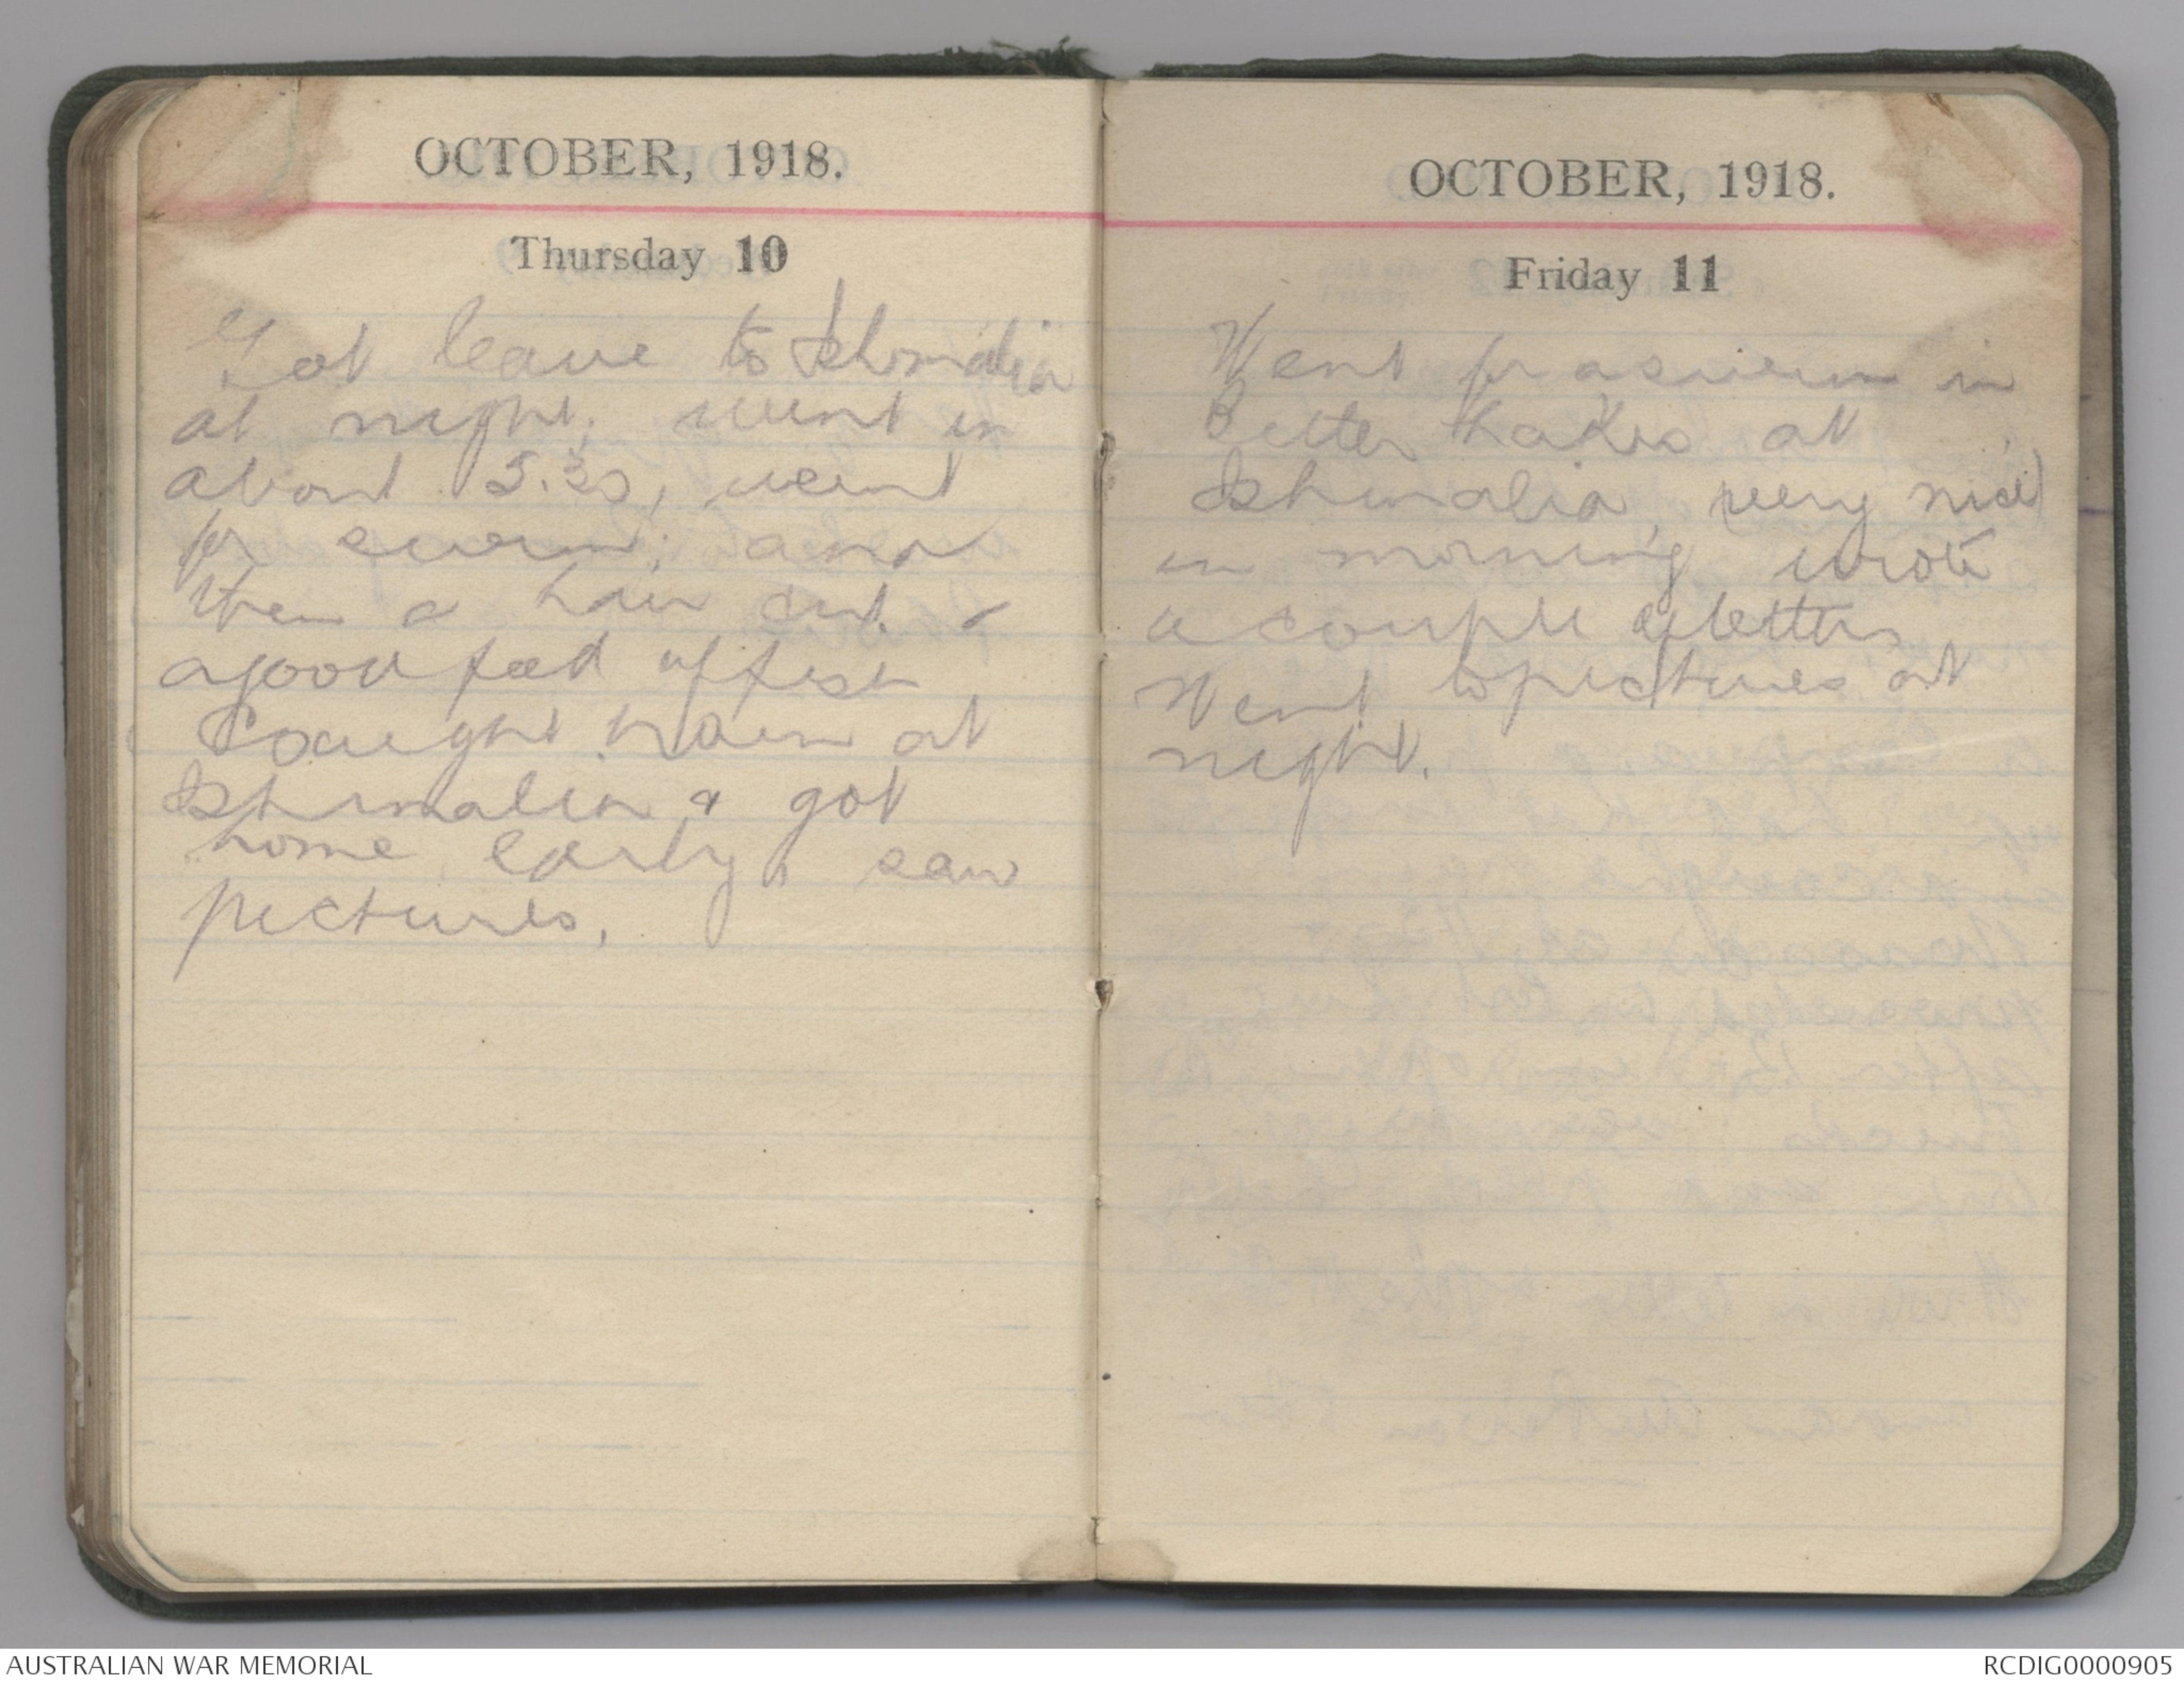 OCTOBER, 1918.
Thursday 10
Got leave to Ishmalia
at night, went in
about 5.30, went
for swim; and
then a hair cut. &
a good feed of fish
Caught train at
Ishmalia & got
home early & saw
pictures.
OCTOBER, 1918.
Friday 11
Went for a swim in
Bitter Lakes at
Ishmalia, (very nice)
in morning wrote
a couple of letters
Went to pictures at
night.
AUSTRALIAN WAR MEMORIAL
RCDIG0000905